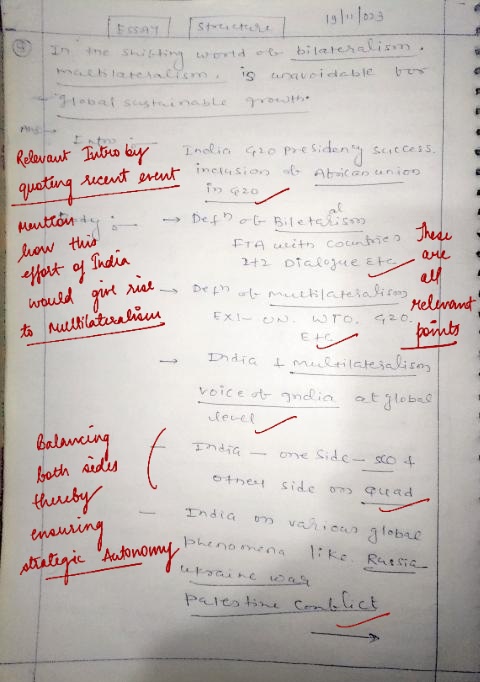 ESSAY Structure 19/11/023
Q In the shifting world of bilateralism.
multilateralism. is unavoidable for
global sustainable growth.
Ans →
Intro :- India G20 presidency success.
inclusion of African union
in G20
Relevant Intro by
quoting recent event
Body :- → Defn of Biletarism
al
FTA with countries
2+2 Dialogue Etc
Mention
how this
effort of India
would give rise
to Multilateralism
These
are
all
relevant
points
→ Defn of multilateralism
EX:- UN. WTO. G20.
Etc
→ India & multilateralism
voice of India at global
level
- India - one side - SCO &
other side on Quad
Balancing
both sides
thereby
ensuring
strategic Autonomy
- India on various global
phenomena like. Russia
ukraine war
Palestine conflict